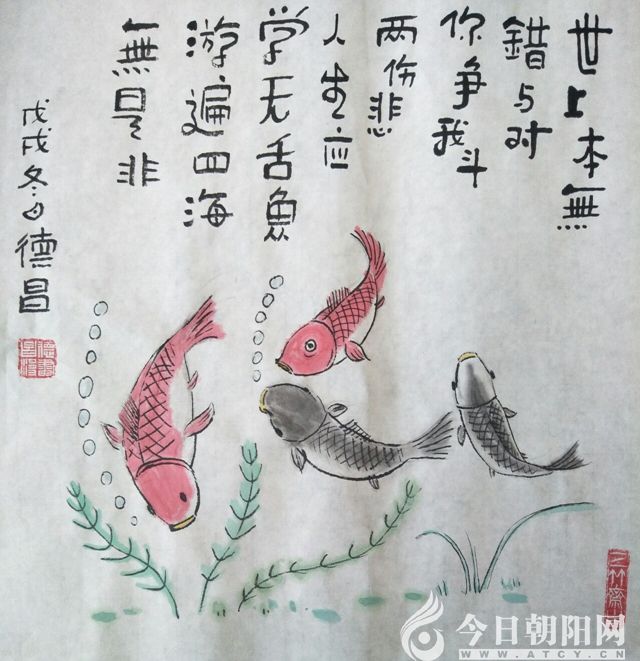 世上本無
錯与对
你争我斗
两伤悲
人生应
学无舌魚
游遍四海
無是非
戊戌冬日德昌
今日朝阳网
WWW.ATCY.CN